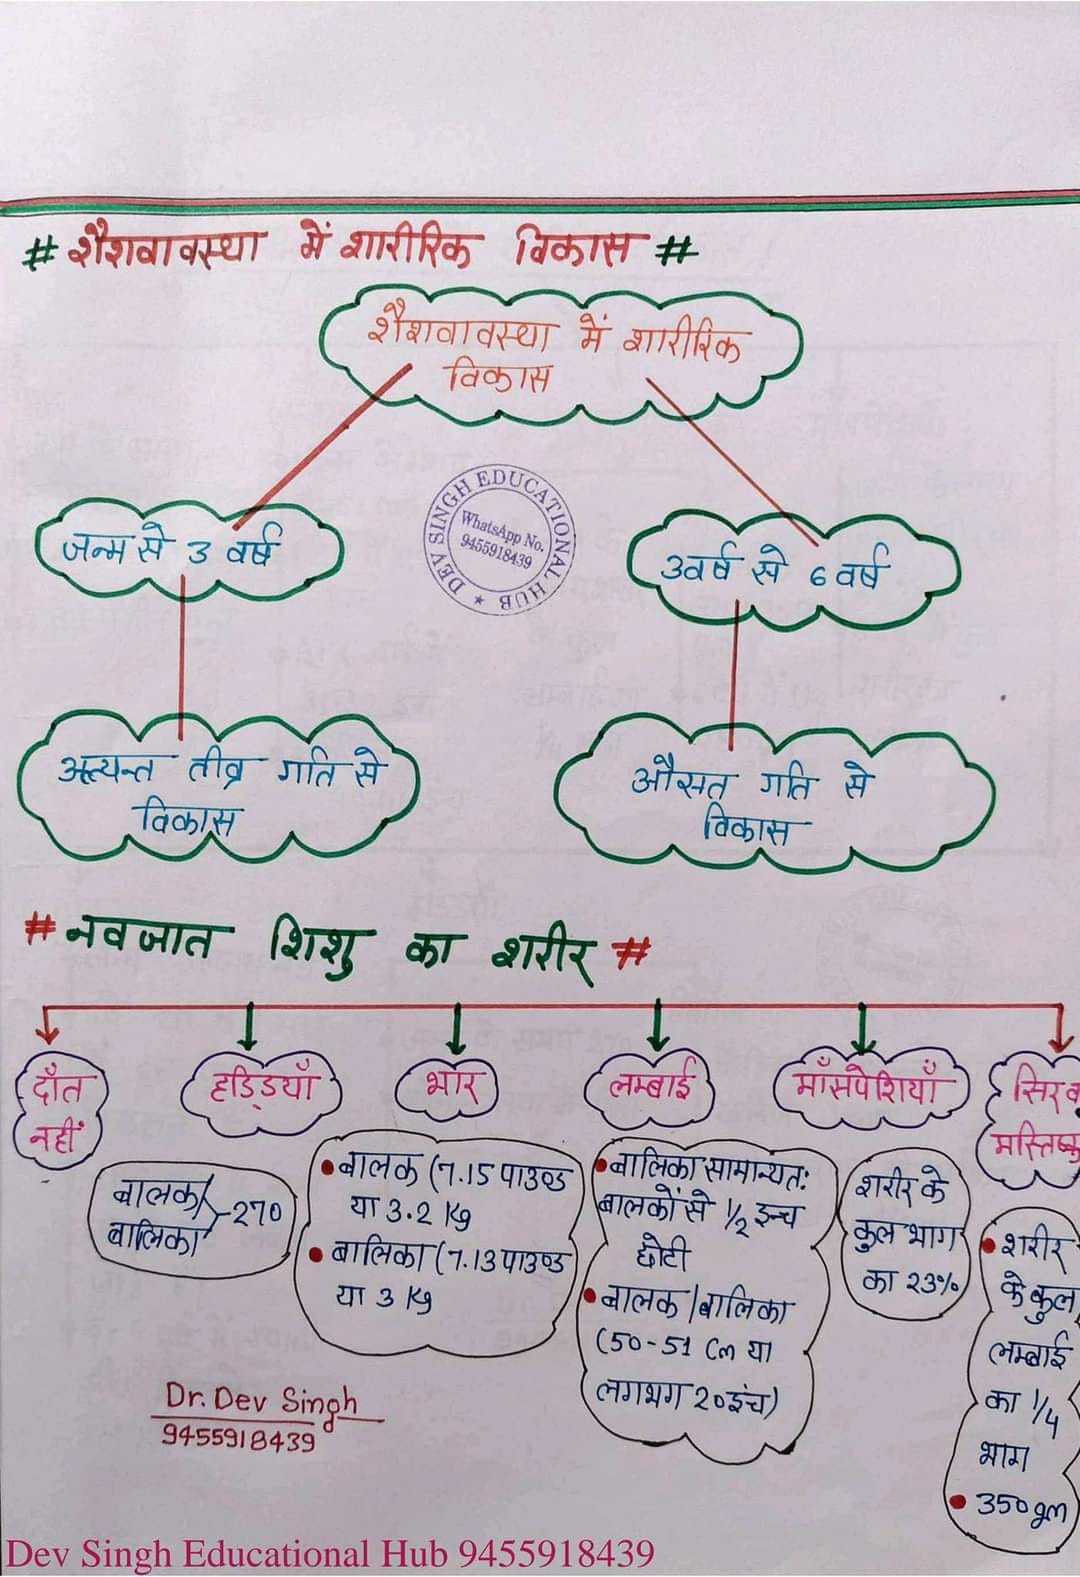 # शैशवावस्था में शारीरिक विकास #
शैशवावस्था में शारीरिक
विकास
DEV SINGH EDUCATIONAL HUB ★
WhatsApp No.
9455918439
जन्म से 3 वर्ष
3वर्ष से 6 वर्ष
अत्यन्त तीव्र गति से
विकास
औसत गति से
विकास
# नवजात शिशु का शरीर #
दाँत
नहीं
हड्डियाँ
बालक/
बालिका
-270
भार
• बालक (7.15 पाउण्ड
या 3.2 Kg
• बालिका (7.13 पाउण्ड
या 3 Kg
लम्बाई
• बालिका सामान्यतः
बालकों से 1/2 इन्च
छोटी
• बालक/बालिका
(50-51 Cm या
लगभग 20 इंच)
माँसपेशियाँ
शरीर के
कुल भाग
का 23%
सिर व
मस्तिष्क
• शरीर
के कुल
लम्बाई
का 1/4
भाग
• 350 gm
Dr. Dev Singh
9455918439
Dev Singh Educational Hub 9455918439